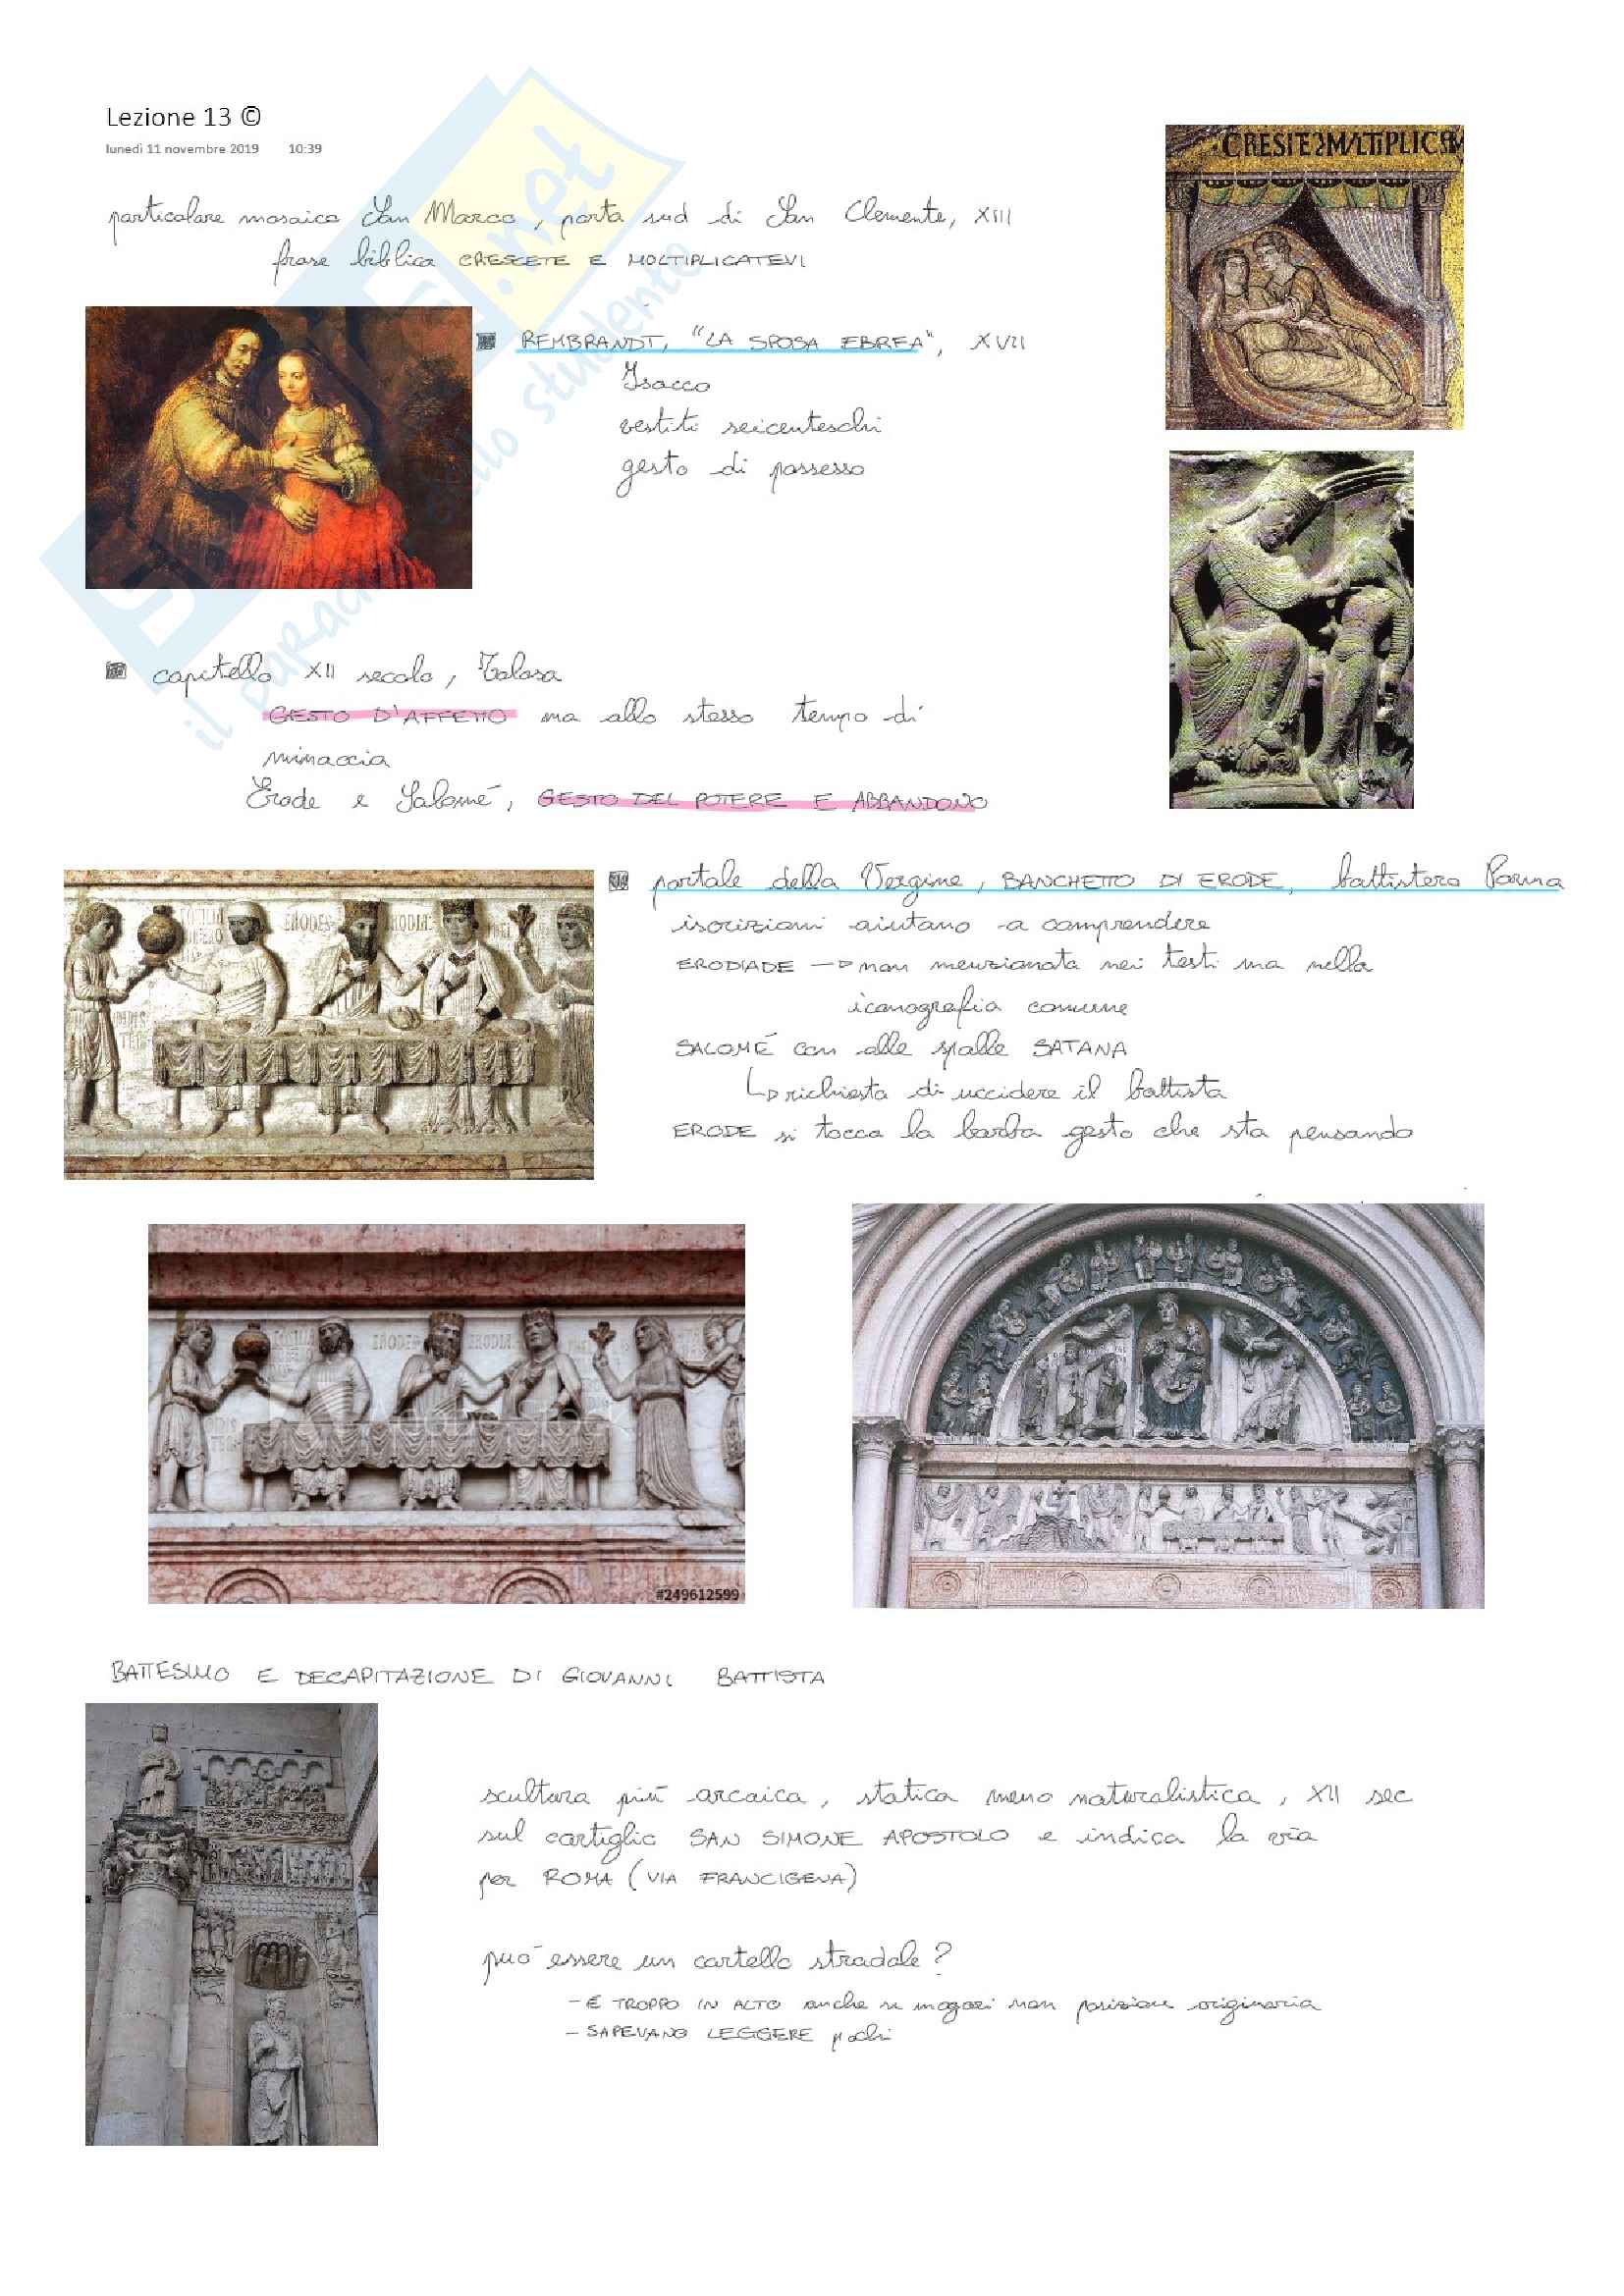 Lezione 13 ©
lunedì 11 novembre 2019 10:39
particolare mosaico San Marco, porta sud di San Clemente, XIII
frase biblica CRESCETE E MOLTIPLICATEVI
CRESITE
REMBRANDT, "LA SPOSA EBREA", XVII
Isacco
vestiti seicenteschi
gesto di possesso
capitello XII secolo, Tolosa
GESTO D'AFFETTO ma allo stesso tempo di
minaccia
Erode e Salomé, GESTO DEL POTERE E ABBANDONO
portale della Vergine, BANCHETTO DI ERODE, battistero Parma
iscrizioni aiutano a comprendere
ERODIADE → non menzionata nei testi ma nella
iconografia comune
SALOMÉ con alle spalle SATANA
↳ richiesta di uccidere il battista
ERODE si tocca la barba gesto che sta pensando
#249612599
BATTESIMO E DECAPITAZIONE DI GIOVANNI BATTISTA
scultura più arcaica, statica meno naturalistica, XII sec
sul cartiglio SAN SIMONE APOSTOLO e indica la via
per ROMA (VIA FRANCIGENA)
può essere un cartello stradale?
- È TROPPO IN ALTO anche se magari non posizione originaria
- SAPEVANO LEGGERE pochi
.net
il dello studente